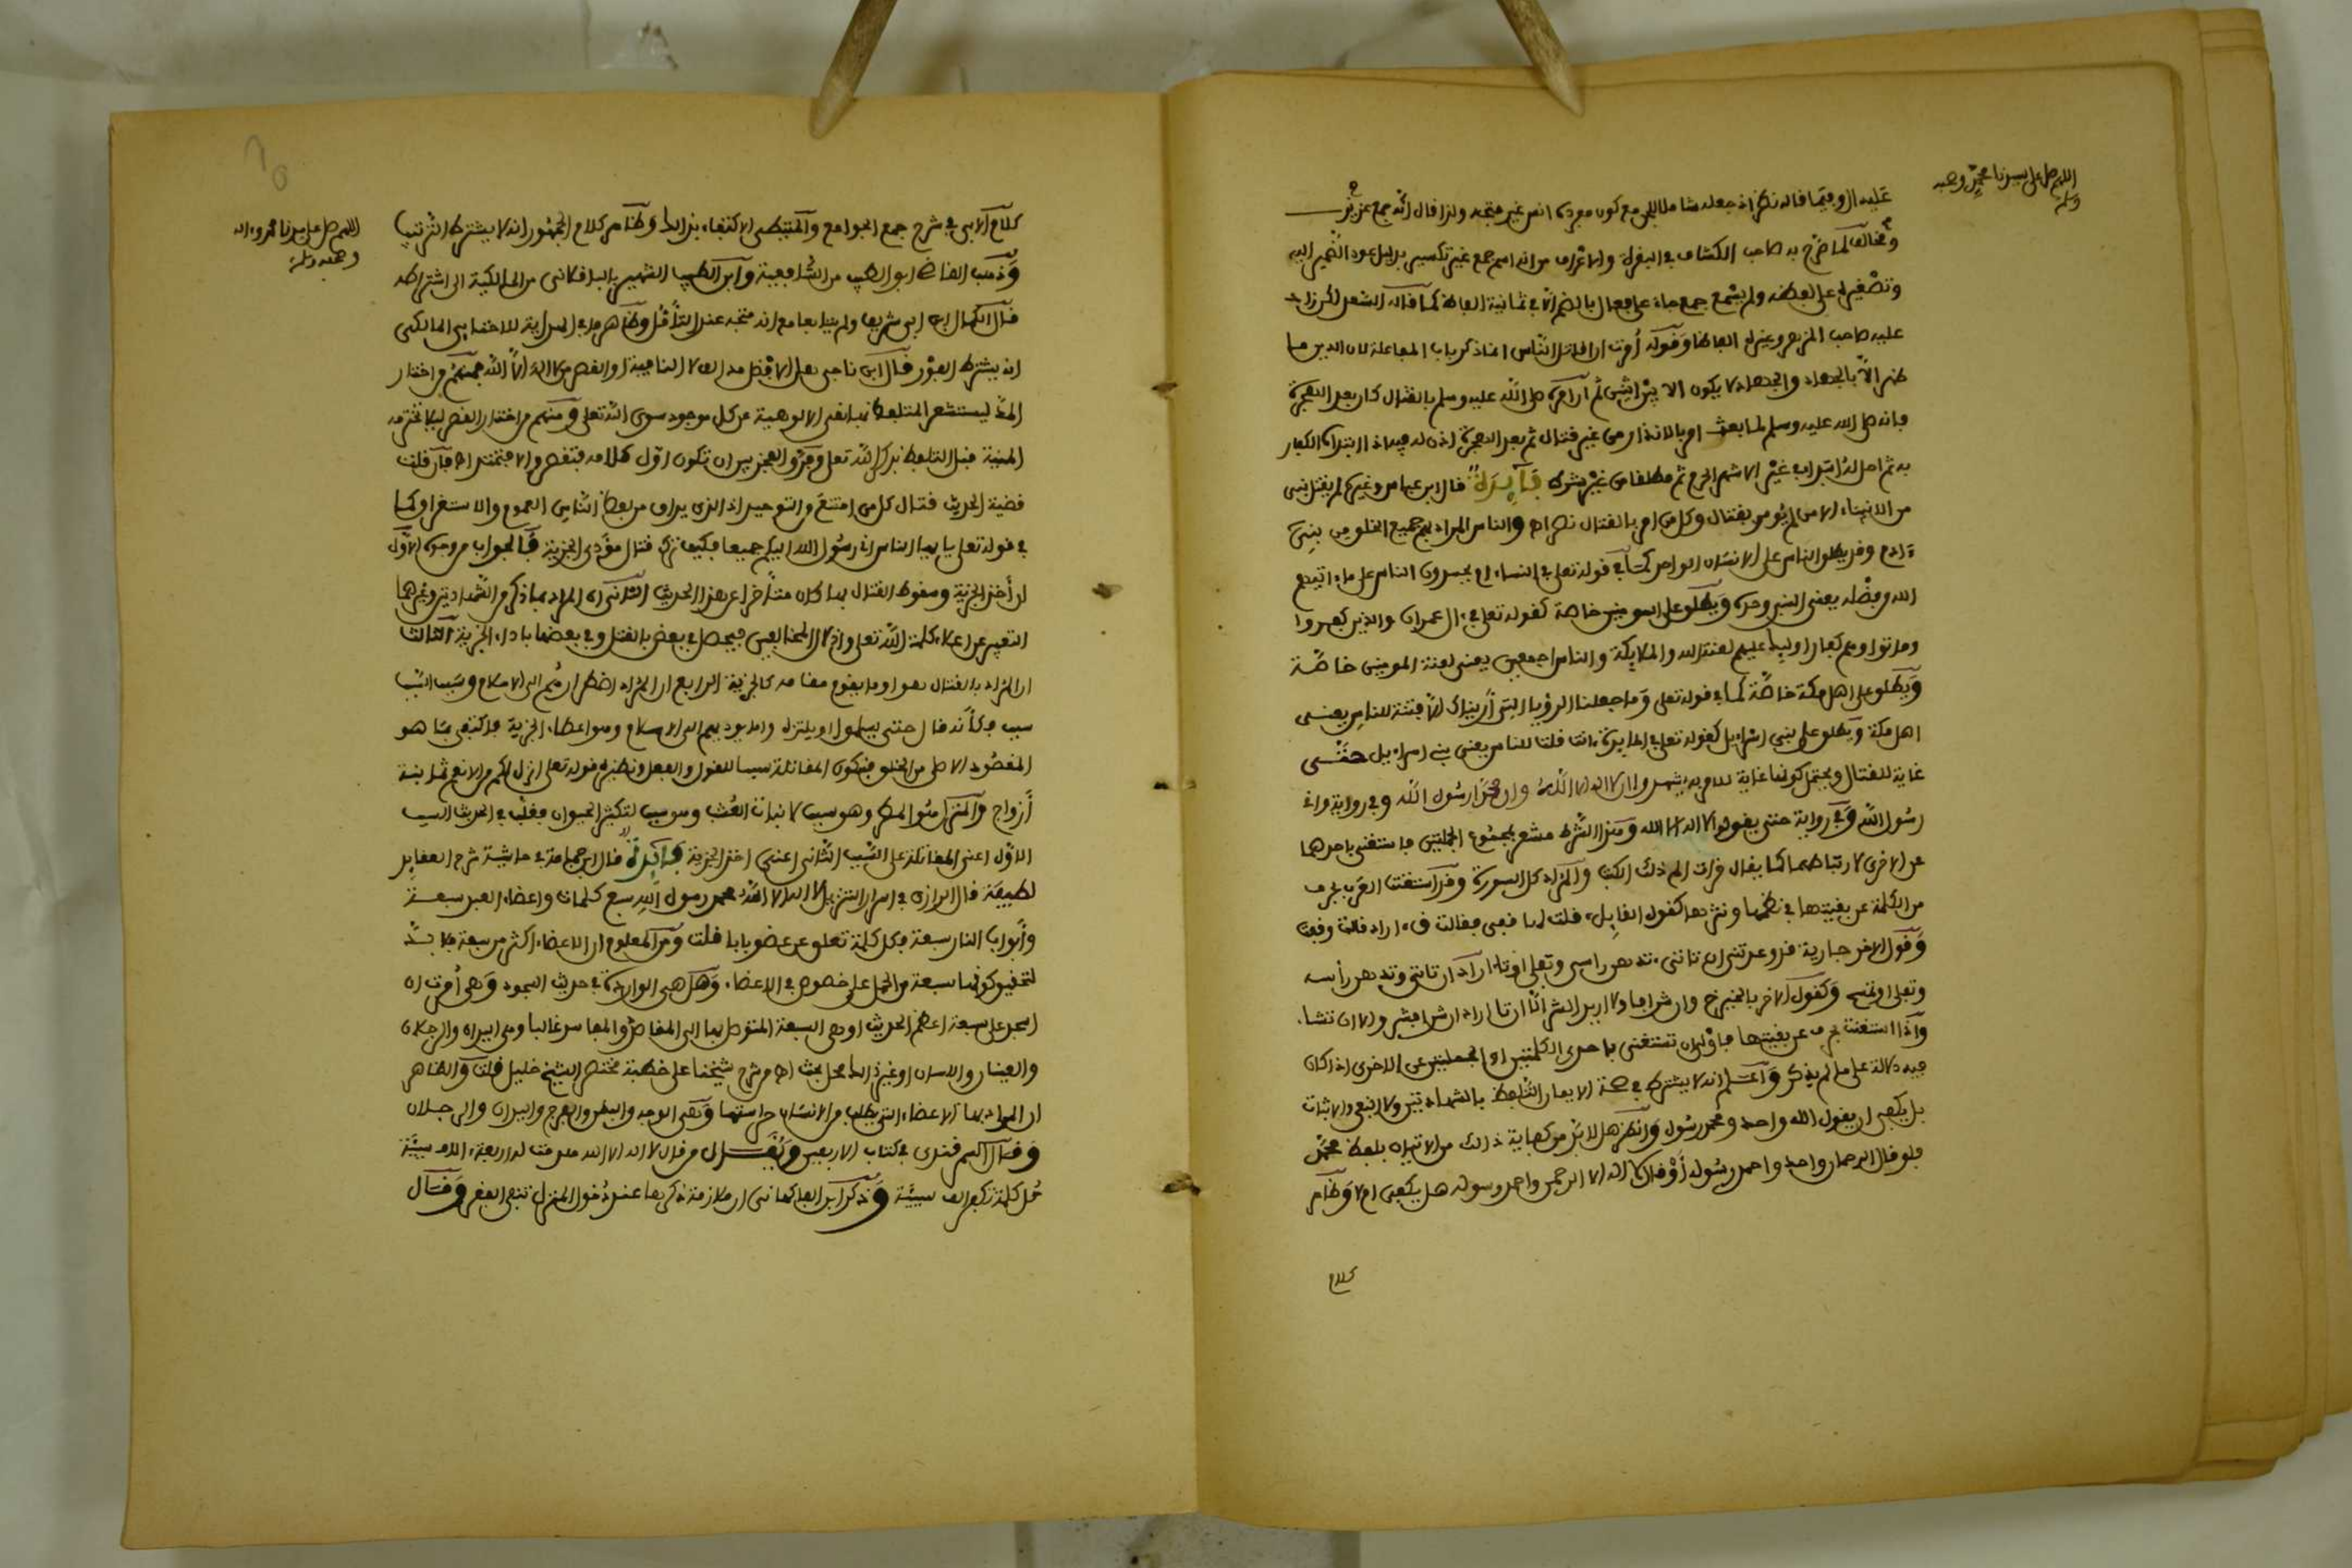 اللهم صل على سيدنا محمد وصحبه
وسلم
عليه ال وفيما قاله نظر اذ جعله شاملا للجن مع كون مفرده انس غير متجه ولذا قال انه جمع عزيز
ومخالف لما صرح به صاحب الكشاف في البقرة والاعراف من انه اسم جمع غير تكسير بدليل عود الضمير اليه
وتصغيره على لفظه ولم يسمع جمع جاء على فعال بالضم الا في ثمانية الفاظ كما قاله السعد لكن زاد
عليه صاحب المزهر وغيره الفاظا وقوله أمرت ان اقاتل الناس انما ذكر باب المفاعلة لان الدين ما
ظهر الا بالجهاد والجهاد لا يكون الا بين اثنين ثم ان امره صلى الله عليه وسلم بالقتال كان بعد الهجرة
فانه صلى الله عليه وسلم لما بعث امر بالانذار من غير قتال ثم بعد الهجرة اذن له فيه اذا ابتداه الكفار
به ثم احل له ابتداء في غير الاشهر الحرم ثم مطلقا من غير شرط فآيدة قال ابن عباس وغيره لم يقتل نبي
من الانبياء الا من لم يؤمر بقتال وكل من امر بالقتال نصر اه والناس المراد بهم جميع الخلق من بني
ءادم وقد يطلق الناس على الانسان الواحد كما في قوله تعلى في النساء ام يحسدون الناس على ما ءاتيهم
الله من فضله يعني النبي وحده ويطلق على المومنين خاصة كقوله تعلى في ءال عمران والذين كفروا
وماتوا وهم كفار اوليك عليهم لعنة الله والملايكة والناس اجمعين يعني لعنة المومنين خاصة
ويطلق على اهل مكة خاصة كما في قوله تعلى وما جعلنا الرؤيا التي أريناك الا فتنة للناس يعني
اهل مكة ويطلق على بني اسراءيل كقوله تعلى في المايدة ءانت قلت للناس يعني بني اسراءيل حتى
غاية للقتال ويحتمل كونها غاية للامر به يشهدوا ان لا اله الا الله وان محمدا رسول الله وفي رواية واني
رسول الله وفي رواية حتى يقولوا لا اله الا الله وهذا الشرط مشعر بمجموع الجملتين فاستغنى باحدهما
عن الاخرى لارتباطهما كما يقال قرات الم ذلك الكتب والمراد كل السورة وقد استغنت العرب بحرف
من الكلمة عن بقيتها في نظمها ونثرها كقول القايل، قلت لها قفي فقالت ق، اراد قالت وقفت
وقول الاخر جارية قد وعدتني ان تاتي، تدهن راسي وتفلي اوتا، اراد ان تاتي وتدهن رأسه
وتفلي او تمسح وكقول الاخر بالخير خيرات وان شرا فا ولا اريد الشر الا ان تا اراد ان شرا فشر والا ان تشاء
واذا استغنت بحرف عن بقيتها فأولى ان تستغني باحدى الكلمتين او الجملتين عن الاخرى اذا كان
فيه دلالة على ما لم يذكر واعلم انه لا يشترط في صحة الايمان التلفظ بالشهادتين ولا النفي والاثبات
بل يكفي ان يقول الله واحد ومحمد رسول وانظر هل لا بد مع كفاية ذلك من الاتيان بلفظ محمد
فلو قال الرحمان واحد واحمد رسوله أو قال لا اله الا الرحمن واحمد رسوله هل يكفي ام لا وظاهر
كلام
اللهم صل على سيدنا محمد وءاله
وصحبه وسلم
كلام الابي في شرح جمع الجوامع والمتيطي الاكتفاء بذلك وظاهر كلام الجمهور انه لا يشترط الترتيب
وذهب القاضي ابو الطيب من الشافعية وابن الطيب الشهير بالباقلاني من المالكية الى اشتراطه
قال الكمال ابن ابي شريف ولم يتابعا مع انه متجه عند التأمل وظاهر ما في الهداية للاخنايي المالكي
انه يشترط الفور قال ابن ناجي هل الافضل مد الف لا النافية او القصر من لا اله الا الله فمنهم من اختار
المد ليستشعر المتلفظ بها نفي الالوهية عن كل موجود سوى الله تعلى ومنهم من اختار القصر ليلا تخترمه
المنية قبل التلفظ بذكر الله تعلى وفرق الفخر بين ان تكون اول كلامه فتقصر والا فتمد اه فان قلت
قضية الحديث قتال كل من امتنع من التوحيد اذ الذي يراد من لفظ الناس العموم والاستغراق كما
في قوله تعلى يا يها الناس اني رسول الله اليكم جميعا فكيف ترك قتال مؤدي الجزية فالجواب من وجوه الاول
ان أخذ الجزية وسقوط القتال بها كان متأخرا عن هذا الحديث الثاني ان المراد بما ذكر من الشهادتين وغيرهما
التعبير عن اعلاء كلمة الله تعلى واذلال المخالفين فيحصل في بعض بالقتل وفي بعضها باداء الجزية الثالث
ان المراد بالقتال هو او ما يقوم مقامه كالجزية الرابع ان المراد اضطرارهم الى الاسلام وسبب السبب
سبب فكأنه قال حتى يسلموا او يلتزموا ما يوديهم الى الاسلام وهو اعطاء الجزية فاكتفى بما هو
المقصود الاصلي من الخلق فتكون المقاتلة سببا للقول والفعل ونظيره قوله تعلى انزل لكم من الانعم ثمانية
أزواج والمنزل هو المطر وهو سبب لانبات العشب وهو سبب لتكثير الحيوان فغلب في الحديث السبب
الاول اعني المقاتلة على السبب الثاني اعني اخذ الجزية فايدة قال ابن جماعة في حاشية شرح العقايد
لطيفة قال الرازي في اسرار التنزيل لا اله الا الله محمد رسول الله سبع كلمات واعضاء العبد سبعة
وأبواب النار سبعة فكل كلمة تغلق عن عضو بابا قلت ومن المعلوم ان الاعضاء اكثر من سبعة فلا بد
لتحقيق كونها سبعة من الحمل على خصوص في الاعضاء وهل هي الواردة في حديث السجود وهي أمرت ان
اسجد على سبعة اعظم الحديث او هي السبعة المتوصل بها الى المفاخر والمفاسد غالبا وهي اليدان والرجلان
والعينان واللسان او غير ذلك محل بحث اه من شرح شيخنا على خطبة مختصر الشيخ خليل قلت والظاهر
ان المراد بها الاعضاء التي يطلب من الانسان حراستها وهي الوجه والبطن والفرج واليدان والرجلان
وقال السمرقندي في كتاب الاربعين ويقال من قال لا اله الا الله هدمت له اربعة ءالاف سيئة
كل كلمة تكفر الف سيئة وذكر ابن الفاكهاني ان ملازمة ذكرها عند دخول المنزل تنفي الفقر وقال